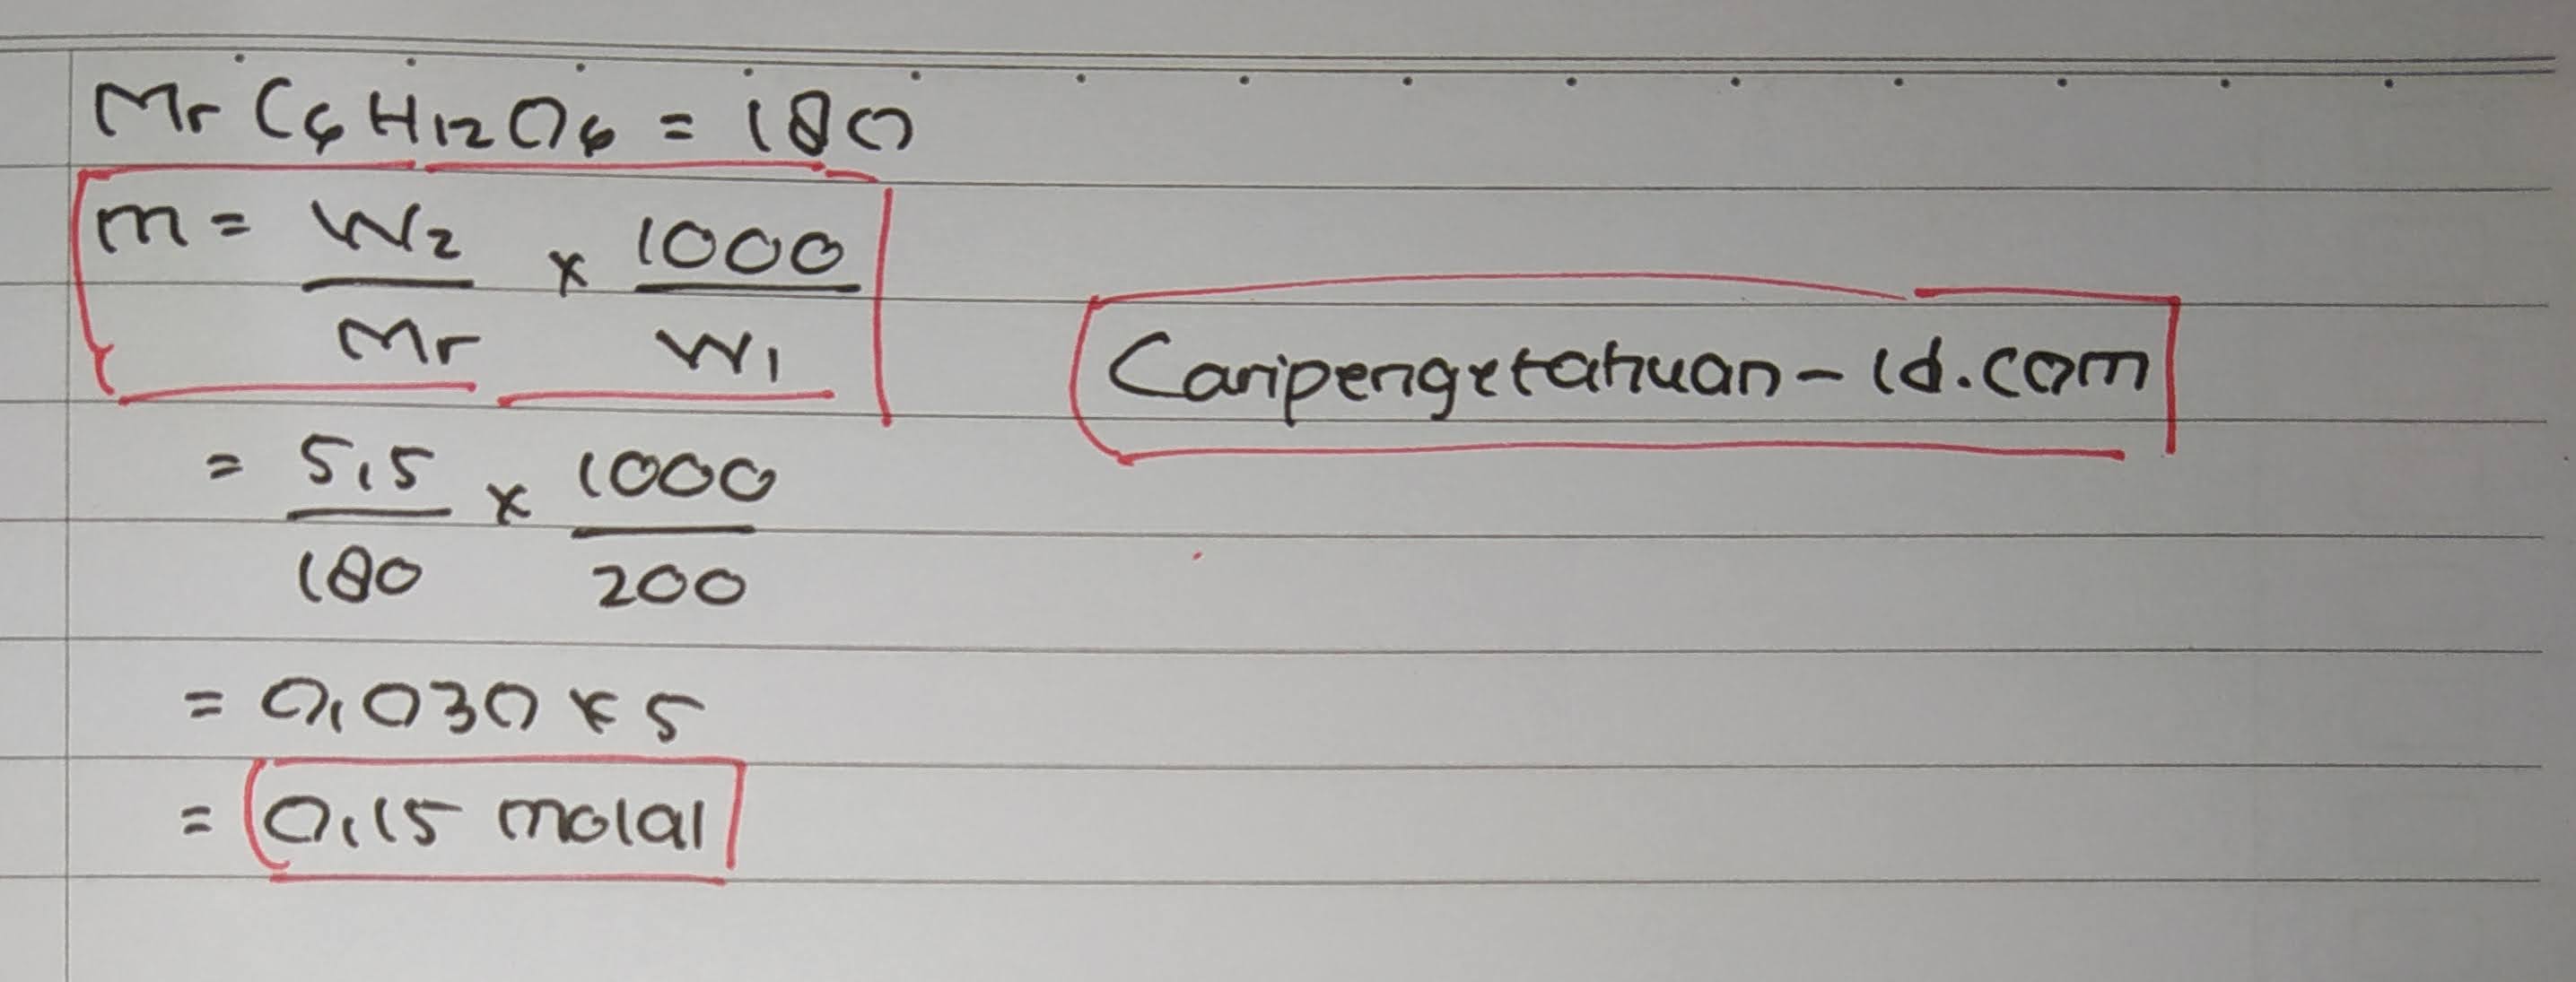 Mr C6H12O6 = 180
m = W2 × 1000
Mr W1
Caripengetahuan-id.com
= 5,5 × 1000
180 200
= 0,030 × 5
= 0,15 molal